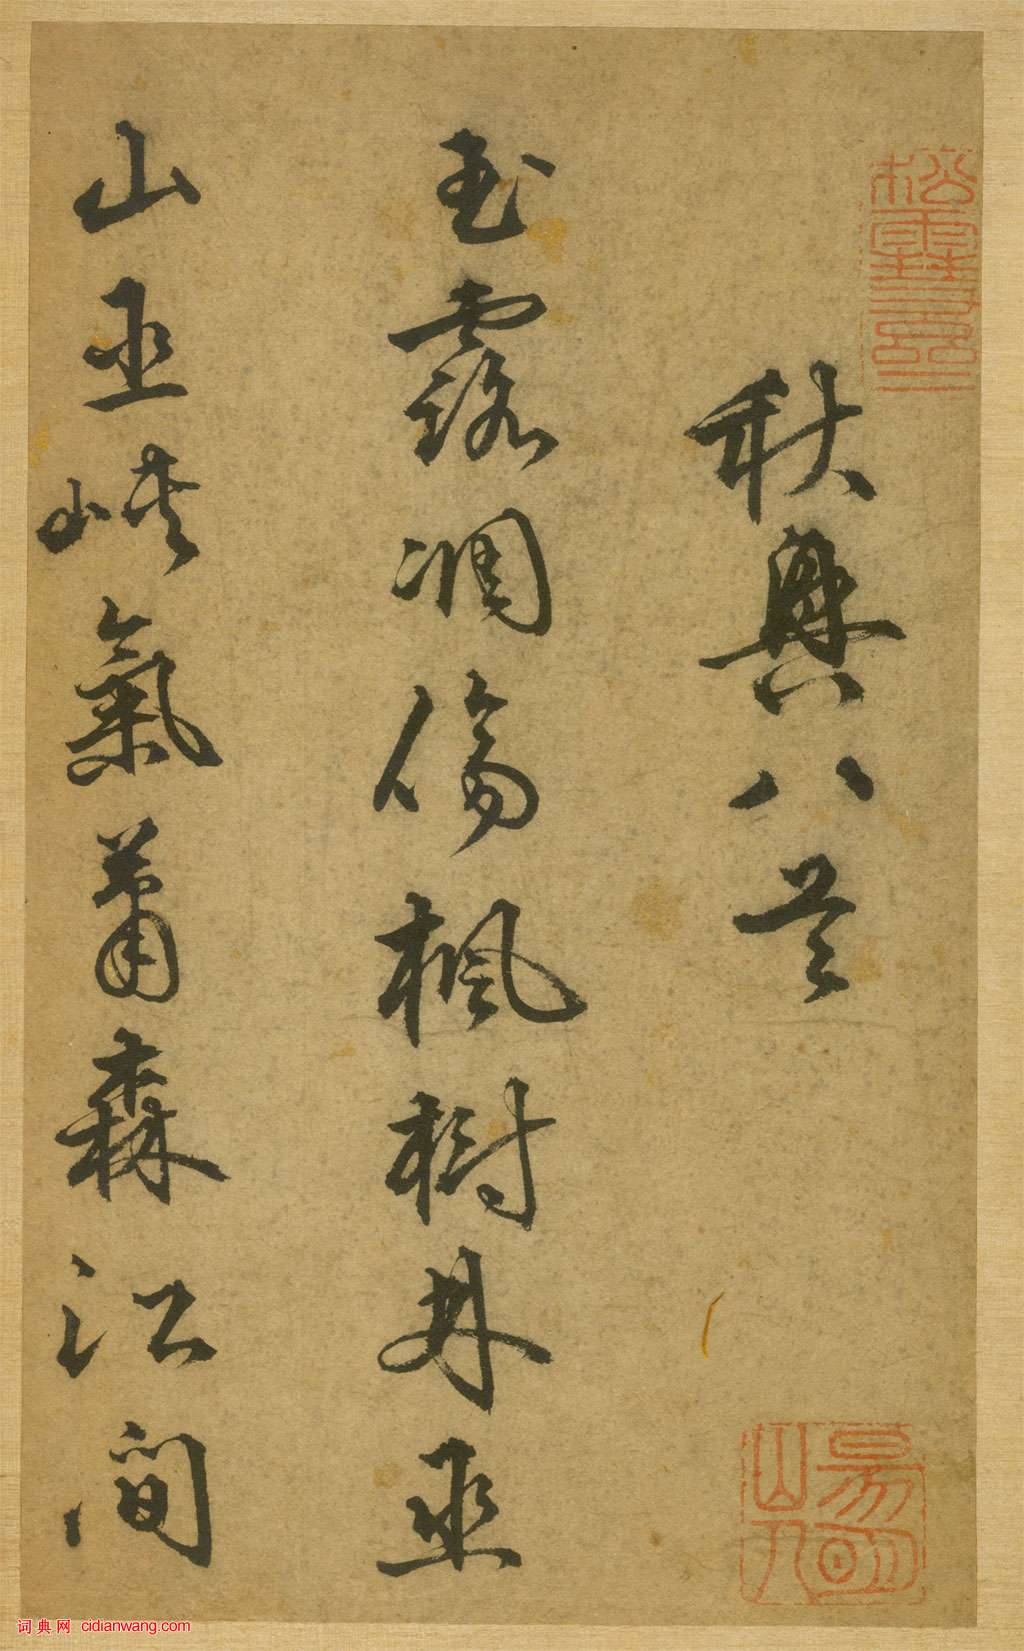 秋興八首
玉露凋傷楓樹林巫
山巫峽氣蕭森江間
词典网 cidianwang.com